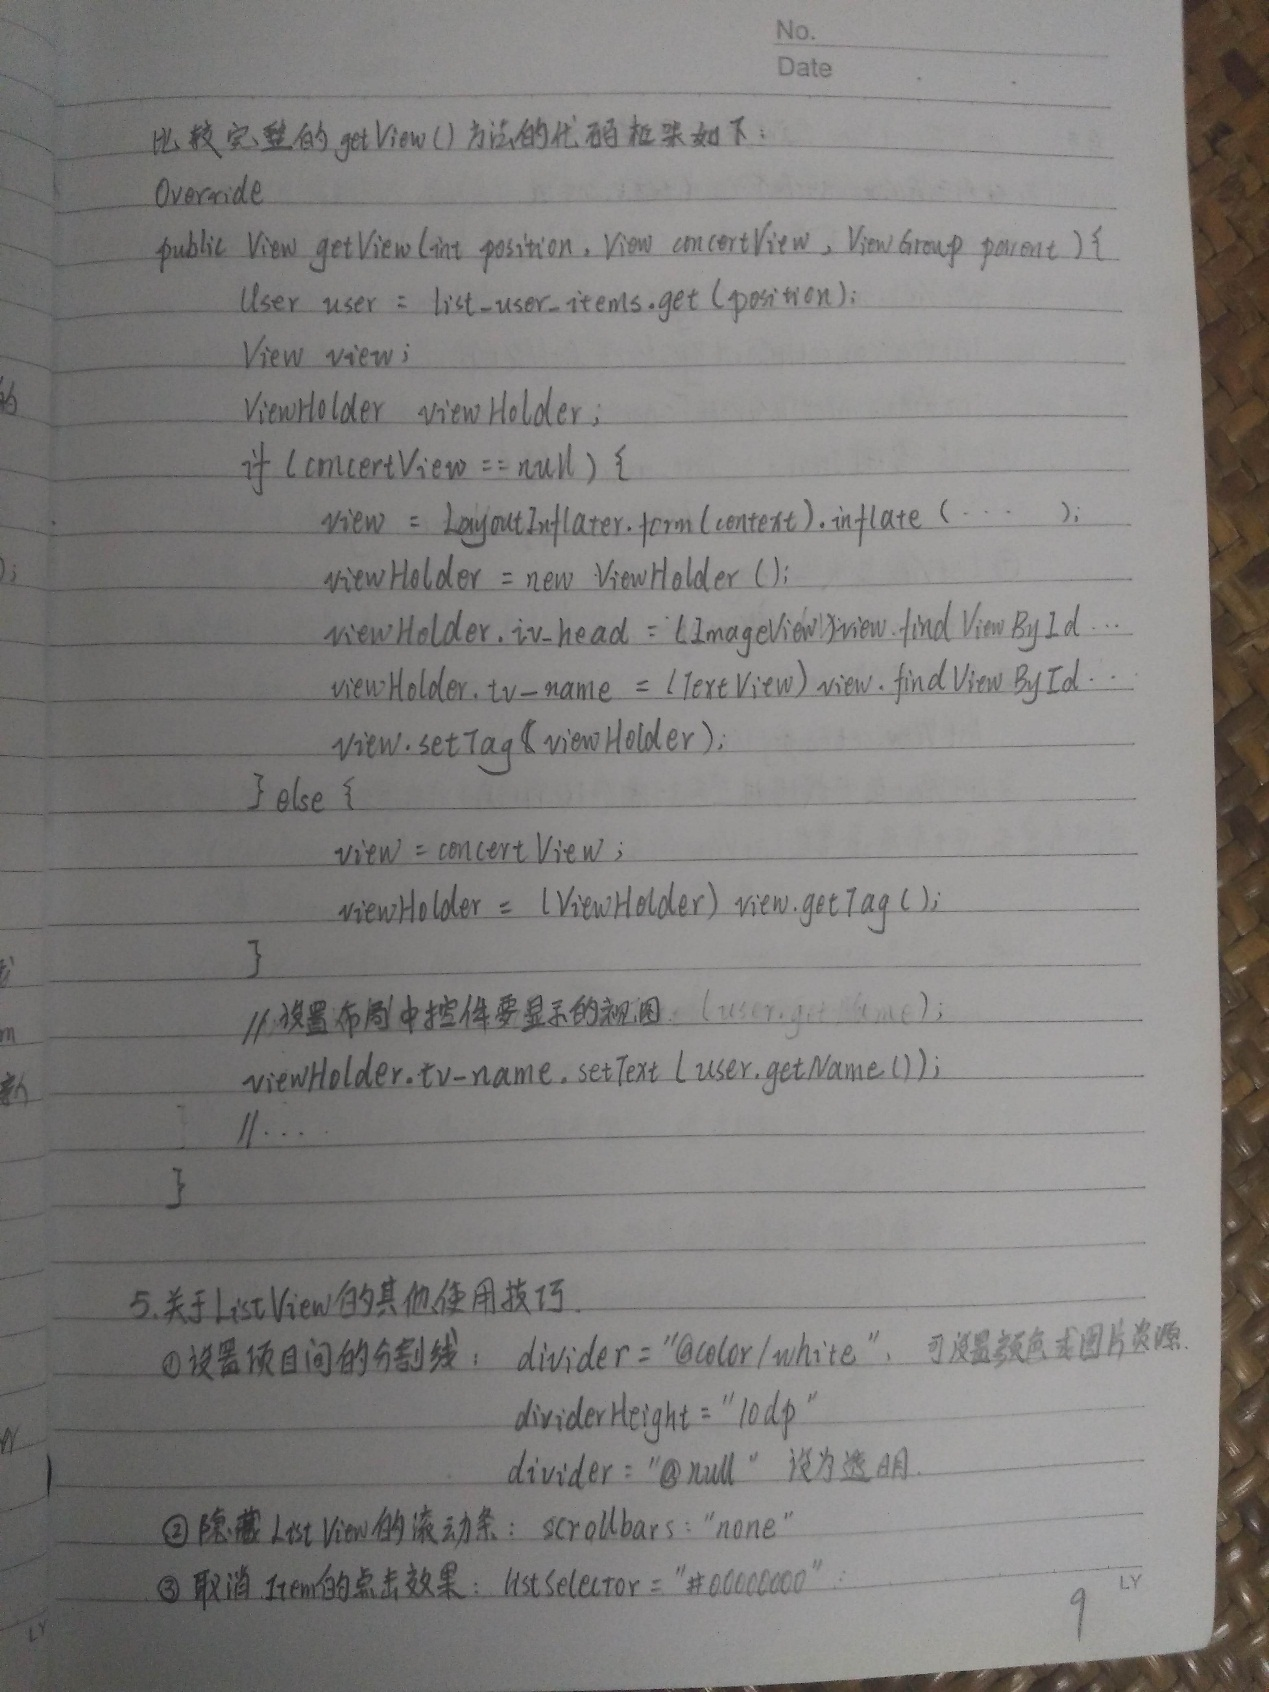 No.
Date
比较完整的getView()方法的代码框架如下:
Override
public View getView(int position, View concertView, ViewGroup parent){
User user = list-user-items.get(position);
View view;
ViewHolder viewHolder;
if (concertView == null) {
view = LayoutInflater.form(context).inflate (... );
viewHolder = new ViewHolder ();
viewHolder.iv-head = (ImageView)view.findViewById...
viewHolder.tv-name = (TextView) view.findViewById...
view.setTag(viewHolder);
} else {
view = concertView;
viewHolder = (ViewHolder) view.getTag();
}
//设置布局中控件要显示的视图
viewHolder.tv-name.setText(user.getName());
//....
}
5.关于ListView的其他使用技巧.
①设置项目间的分割线: divider="@color/white", 可设置颜色或图片资源.
dividerHeight="10dp"
divider="@null" 设为透明.
②隐藏ListView的滚动条: scrollbars="none"
③取消Item的点击效果: listSelector="#00000000"
LY
9
LY